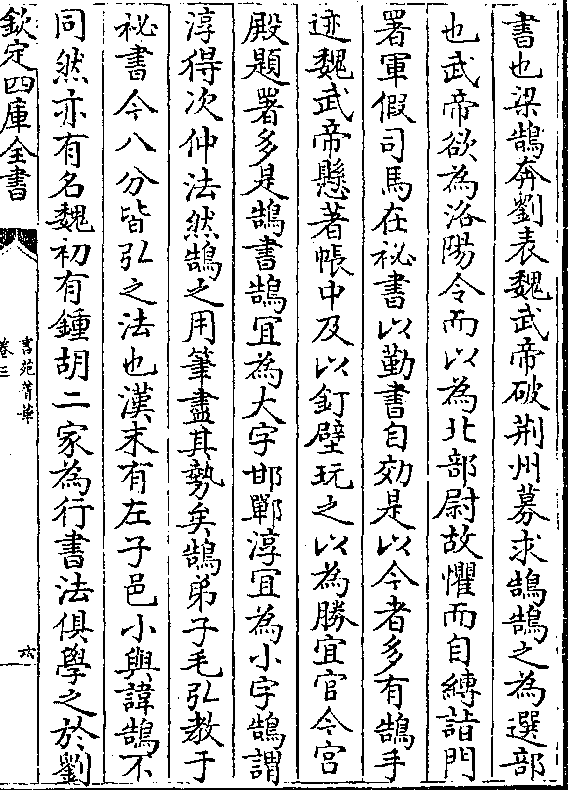 書也梁鵠奔劉表魏武帝破荆州募求鵠鵠之為選部
也武帝欲為洛陽令而以為北部尉故懼而自縛詣門
署軍假司馬在祕書以勤書自効是以今者多有鵠手
迹魏武帝懸著帳中及以釘壁玩之以為勝宜官今宫
殿題署多是鵠書鵠宜為大字邯鄲淳宜為小字鵠謂
淳得次仲法然鵠之用筆盡其勢矣鵠弟子毛弘教于
祕書今八分皆弘之法也漢末有左子邑小與諱鵠不
同然亦有名魏初有鍾胡二家為行書法俱學之於劉
欽定四庫全書
書苑菁華
卷三
六